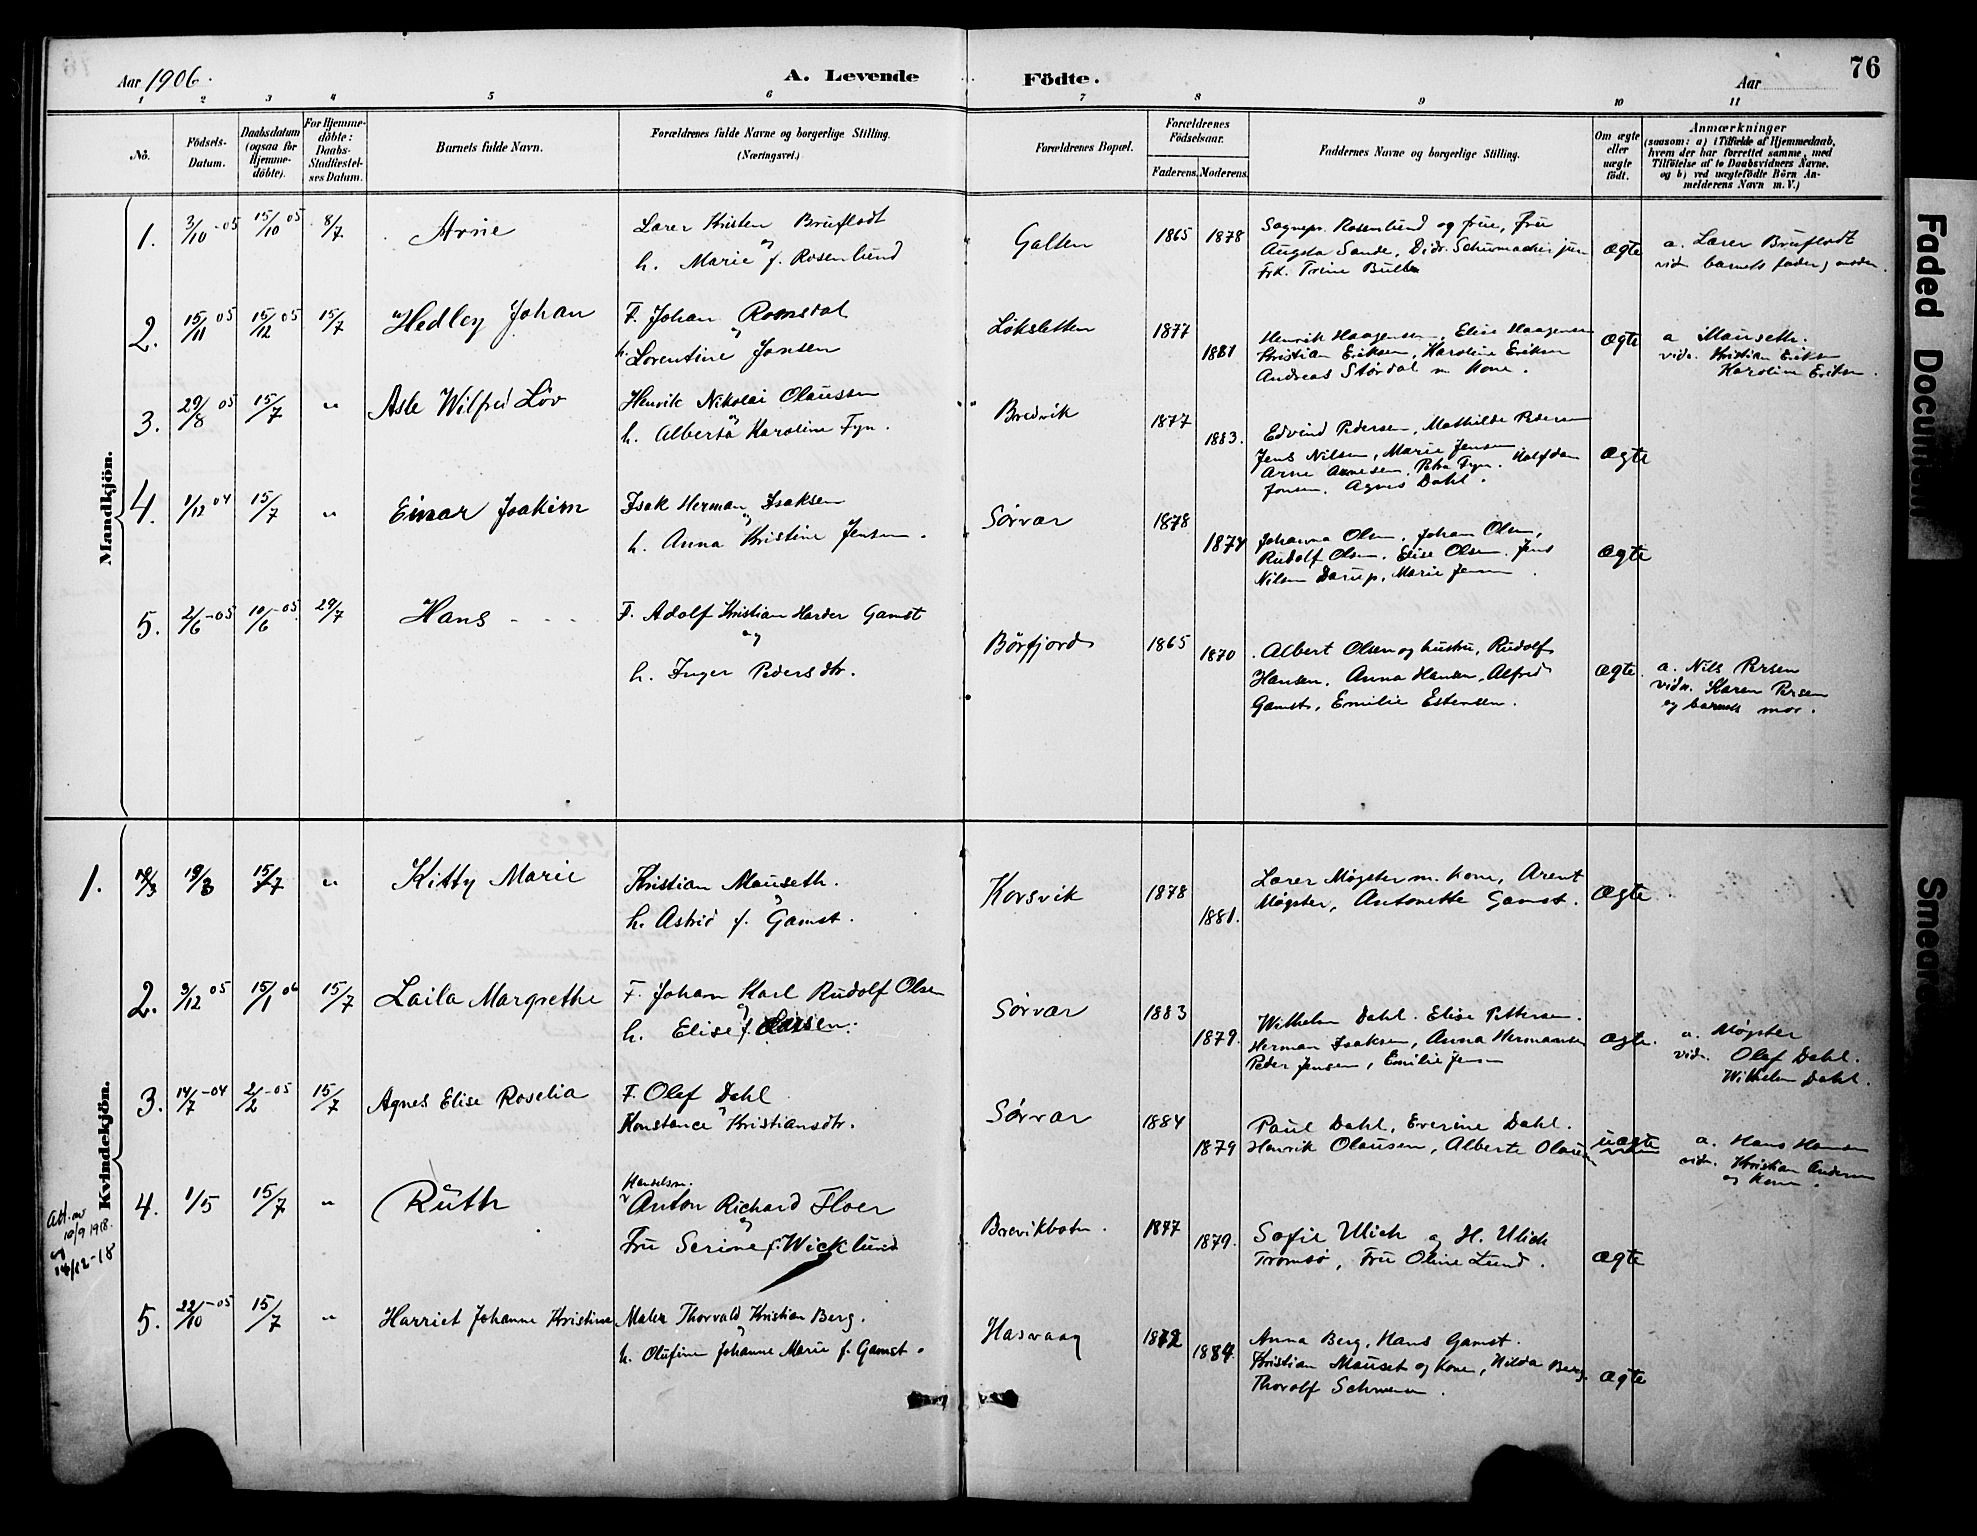 76
Aar 1906.
A. Levende Födte.
Aar
1 2 3 4 5 6 7 8 9 10 11
No.
Födsels-Datum.
Daabsdatum (ogsaa for Hjemme-döbte).
For Hjemme-döbte: Daabs-Stadfæstel-ses Datum.
Barnets fulde Navn.
Forældrenes fulde Navne og borgerlige Stilling.
(Næringsvei.)
Forældrenes Bopæl.
Forældrenes Födselsaar.
Faderens. Moderens.
Faddernes Navne og borgerlige Stilling.
Om ægte eller uægte födt.
Anmærkninger
(saasom: a) i Tilfælde af Hjemmedaab,
hvem der har forrettet samme, med
Tilföielse af to Daabsvidners Navne,
og b) ved uægtefödte Börn An-
melderens Navn m. V.)
Mandkjön.
1. 3/10-05 15/10 05 8/7 Arne
Lærer Kristen Brufladt
og
h. Marie f. Rosenlund
Galten 1865 1878
Sognepr. Rosenlund og frue, Fru
Augsta Sande, Didr. Schumacher jun
Frk. Trine Bull
ægte
a. Lærer Brufladt
vidn barnets fader, moder.
2. 15/11 05 15/12 05 15/7 Hedley Johan
F. Johan Romsdal
og
h. Lorentine Jonsen
Løksletten 1877 1881
Henrik Haagensen, Elise Haagensen
Kristian Eriksen, Karoline Eriksen
Andreas Størdal m kone.
ægte
a Mauseth.
vidn. Kristian Eriksen
Karoline Eriksen.
3. 29/8 05 15/7 " Asle Wilfred Löv
Henrik Nikolai Olaussen
og
h. Alberta Karoline Fyn.
Bredvik 1877 1883.
Edvind Pedersen, Mathilde Pedersen
Jens Nilsen, Marie Jensen
Arne Arnesen, Petra Fyn. Halfdan
Jonsen. Agnes Dahl.
ægte
4. 1/12 04 15/7 " Einar Joakim
Isak Herman Isaksen
og
h. Anna Kristine Jensen.
Sørvær 1878 1874
Johanna Olsen, Johan Olsen,
Rudolf Olsen. Elise Olsen. Jens
Nilsen Darup, Marie Jensen.
ægte
5. 2/6-05 10/6-05 29/7 Hans
F. Adolf Kristian Harder Gamst
og
h. Inger Pedersdtr.
Børfjord 1865 1870
Albert Olsen og hustru, Rudolf
Hansen, Anna Hansen, Alfred
Gamst, Emilie Estensen.
ægte.
a. Nils Persen
vidn. Karen Persen
og barnets mor.
Kvindekjön.
1. 18/3 15/7 " Kitty Marie
Kristian Mauseth.
og
h. Astrid f. Gamst.
Korsvik 1878 1881.
Lærer Møgster m. kone, Arent
Møgster, Antonette Gamst.
ægte
2. 3/12 05 15/1 06 15/7 Laila Margrethe
F. Johan Karl Rudolf Olsen
og
h. Elise f. Larsen.
Sørvær 1883 1879.
Wilhelm Dahl. Elise Pettersen.
Herman Isaksen, Anna Hermansen
Peder Jensen, Emilie Jensen
ægte.
a. Møgster
vidn. Olaf Dahl.
Wilhelm Dahl.
3. 14/7-04 2/2-05 15/7 Agnes Elise Roselia
F. Olaf Dahl
og
Konstance Kristiansdtr.
Sørvær 1884 1879
Paul Dahl, Everine Dahl.
Henrik Olausen, Alberte Olausen
uægte
a. Hans Hansen
vidn. Kristian Andersen
og kone.
Att. av
10/9 1918.
og
14/12-18
4. 1/5 15/7 " Ruth
Handelsm.
Anton Richard Floer
og
Fru Serine f. Wicklund
Brevikbotn. 1877 1879.
Sofie Ulich og H. Ulich
Tromsø, Fru Oline Lund.
ægte
5. 22/10-05 15/7 " Harriet Johanne Kristine
Maler Thorvald Kristian Berg.
og
h. Olufine Johanne Marie f. Gamst.
Hasvaag 1872 1884
Anna Berg, Hans Gamst.
Kristian Mauset og kone, Hilda Berg.
Thoralf
ægte
Faded Document
Smeared